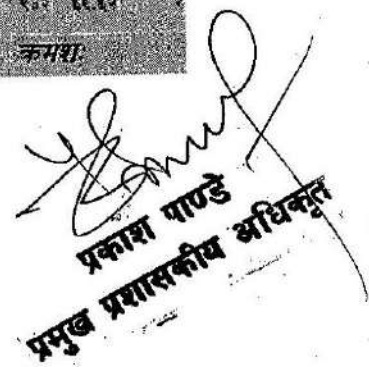 क्रमशः
प्रकाश पाण्डे
प्रमुख प्रशासकीय अधिकृत